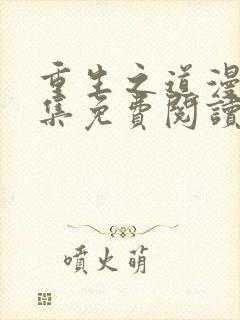 重生之道漫
集免費閱讀
噴火萌